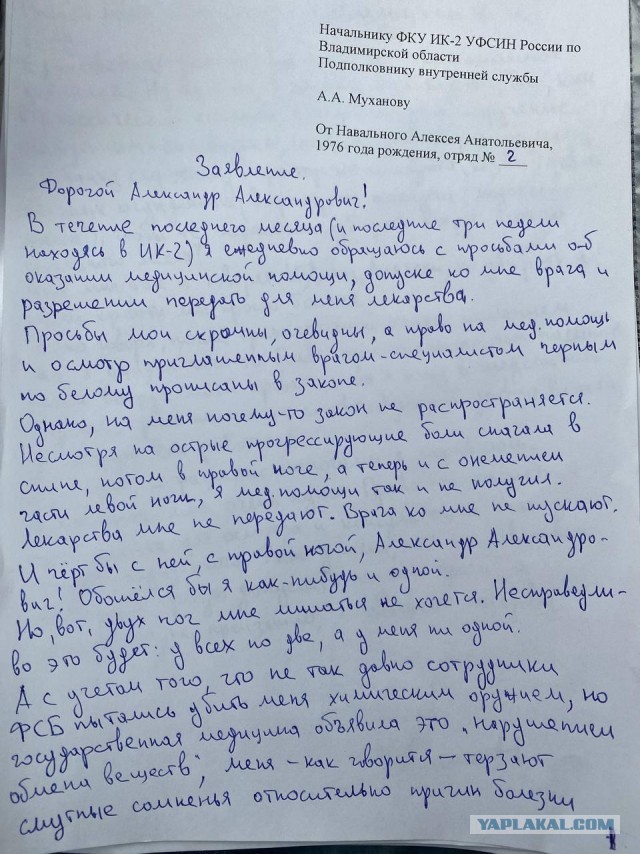 Начальнику ФКУ ИК-2 УФСИН России по
Владимирской области
Подполковнику внутренней службы
А.А. Муханову
От Навального Алексея Анатольевича,
1976 года рождения, отряд № 2
Заявление.
Дорогой Александр Александрович!
В течение последнего месяца (и последние три недели
находясь в ИК-2) я ежедневно обращаюсь с просьбами об
оказании медицинской помощи, допуске ко мне врача и
разрешении передать для меня лекарства.
Просьбы мои скромны, очевидны, а право на мед.помощь
и осмотр приглашенным врачом-специалистом черным
по белому прописаны в законе.
Однако, на меня почему-то закон не распространяется.
Несмотря на острые прогрессирующие боли сначала в
спине, потом в правой ноге, а теперь и с онемением
части левой ноги, я мед.помощи так и не получил.
Лекарства мне не передают. Врача ко мне не пускают.
И чёрт бы с ней, с правой ногой, Александр Александро-
вич! Обошёлся бы я как-нибудь и одной.
Но, вот, двух ног мне лишаться не хочется. Несправедли-
во это будет: у всех по две, а у меня ни одной.
А с учетом того, что не так давно сотрудники
ФСБ пытались убить меня химическим оружием, но
государственная медицина объявила это „нарушением
обмена веществ", меня - как говорится - терзают
смутные сомненья относительно причин болезни
1
YAPLAKAL.COM